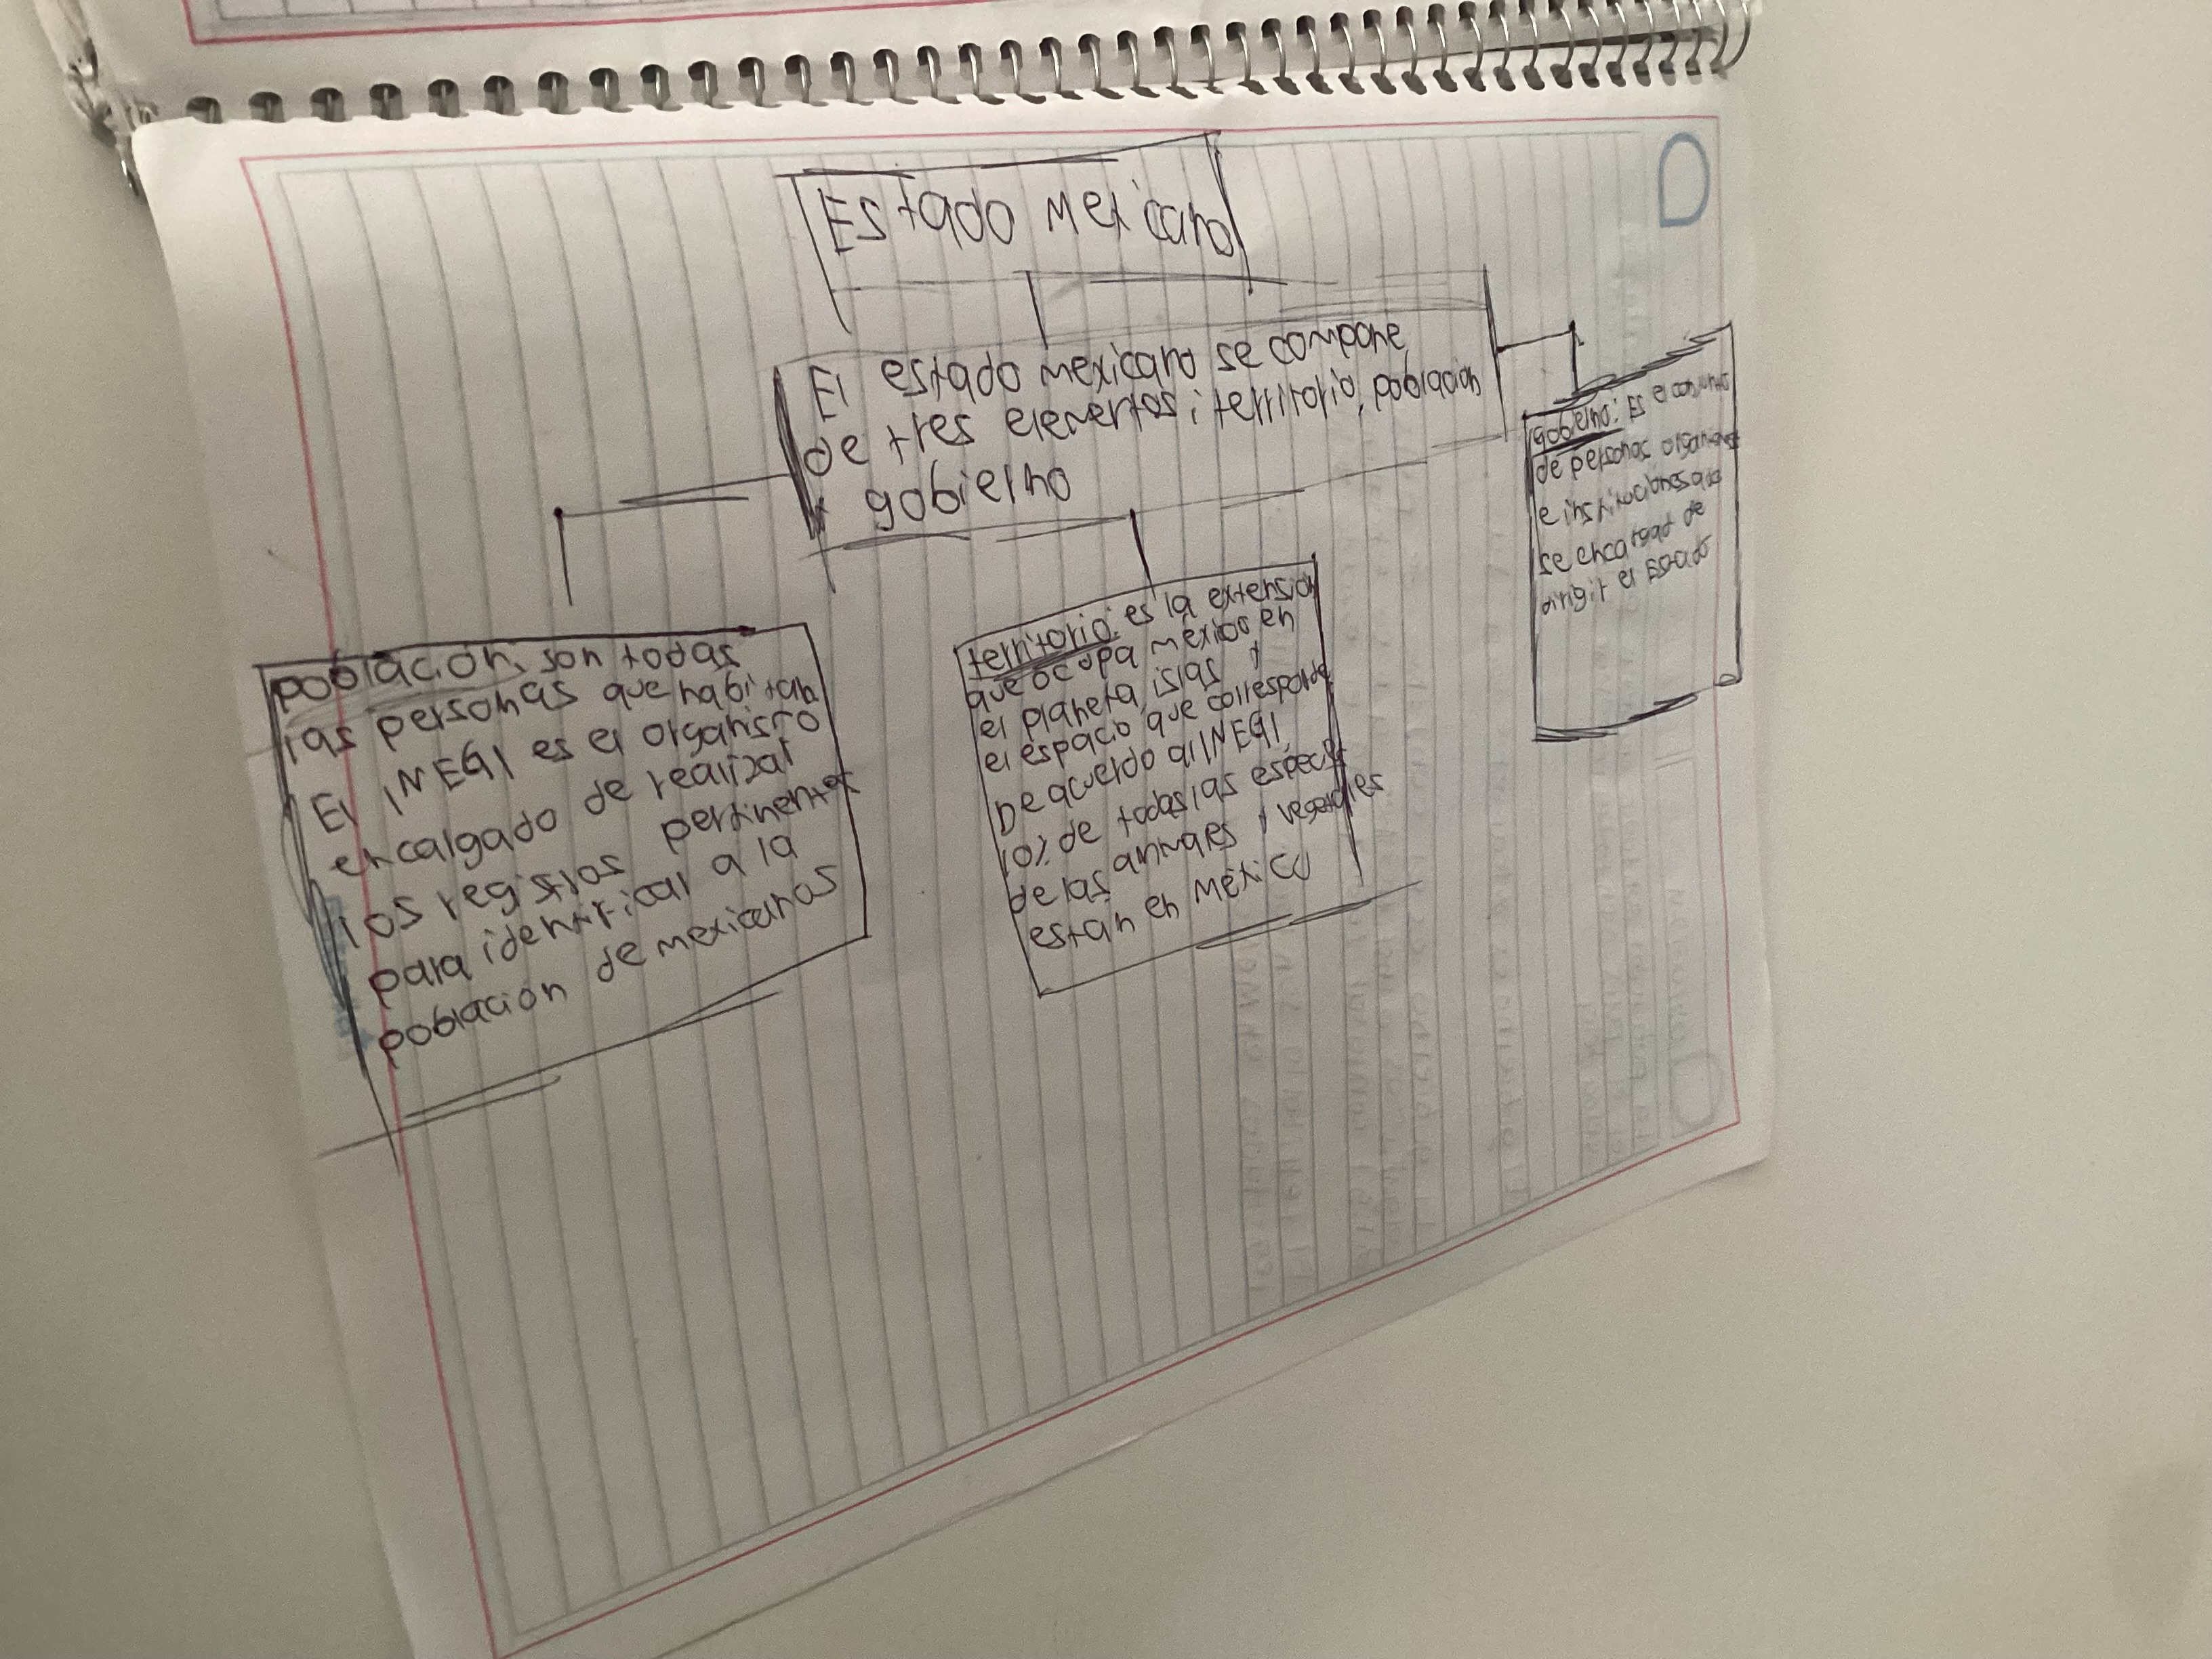 Estado Mexicano
El estado mexicano se compone
de tres elementos; territorio, poblacion
y gobierno
población, son todas
las personas que habitan
El INEGI es el organismo
encargado de realizar
los registros pertinentes
para identificar a la
población de mexicanos
territorio: es la extension
que ocupa méxico en
el planeta, islas y
el espacio que corresponde
De acuerdo al INEGI,
10% de todas las especies
de las animales y vegetales
están en México
gobierno: Es el conjunto
de personas organismos
e instituciones que
se encargad de
dirigir el Estado